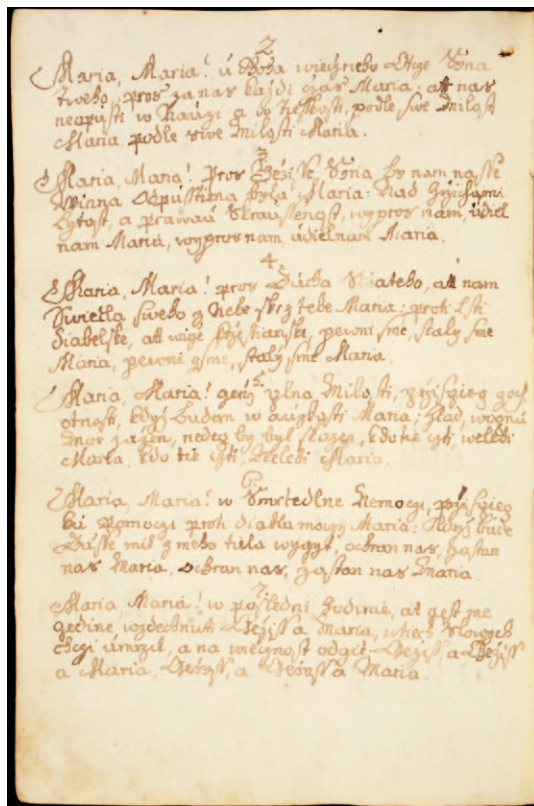 2
Maria, Maria! ú Boha wiecżneho Otcze Syna
tweho, pros za nas każdi cżas Maria, att nas
neopusti w Nauzi a w Tieskosti, podle swe Milost
Maria podle swe Milosti Maria.
3
Maria, Maria! Pros Geżisse, Syna by nam nasse
Winna Odpusstiena byla Maria: Nad Hrzichami
Lytost, a prawau Skraussenost, wypros nam, udiel
nam Maria, wypros nam, udiel nam Maria.
4
Maria, Maria! pros Ducha Swateho, att nam
Swietla sweho z Nebe skrz tebe Maria; proti Lsti
diabelske, att wirze krzestianske, pewni sme, staly sme
Maria, pewni gsme, staly sme Maria.
5
Maria, Maria! plna Milosti,
otnosti, kdyż budem w auzkosti Maria; Hlad,
Mor zażen, nedeg by byl skażen, kdo tie cti, welebi
Maria, kdo tie cti, Welebi Maria.
6
Maria, Maria! w Smrtedlne Nemoczi,
ku pomoczi proti diabla moczy Maria: Kdyż bude
Dusse mit z meho tiela wygyt, ochran nas, zastan
nas Maria, ochran nas, zastan nas Maria
7
Maria, Maria! w posledni Hodinie, att gest me
gedine wzdechnuti Geżiss a Maria, w tiech Slowach
chczi umrzit, a na wiecznost odgit Geżiss, a Geżiss
a Maria, Geżiss, a Geżiss a Maria.